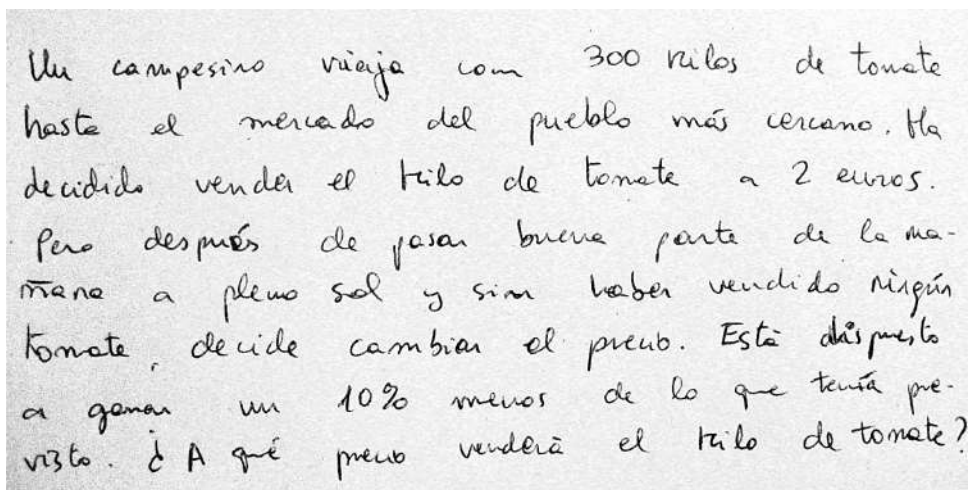 Un campesino viaja com 300 kilos de tomate
hasta el mercado del pueblo más cercano. Ha
decidido vender el kilo de tomate a 2 euros.
Pero después de pasar buena parte de la ma-
ñana a pleno sol y sin haber vendido ningún
tomate, decide cambiar el precio. Está dispuesto
a ganar un 10% menos de lo que tenía pre-
visto. ¿A qué precio venderà el kilo de tomate?